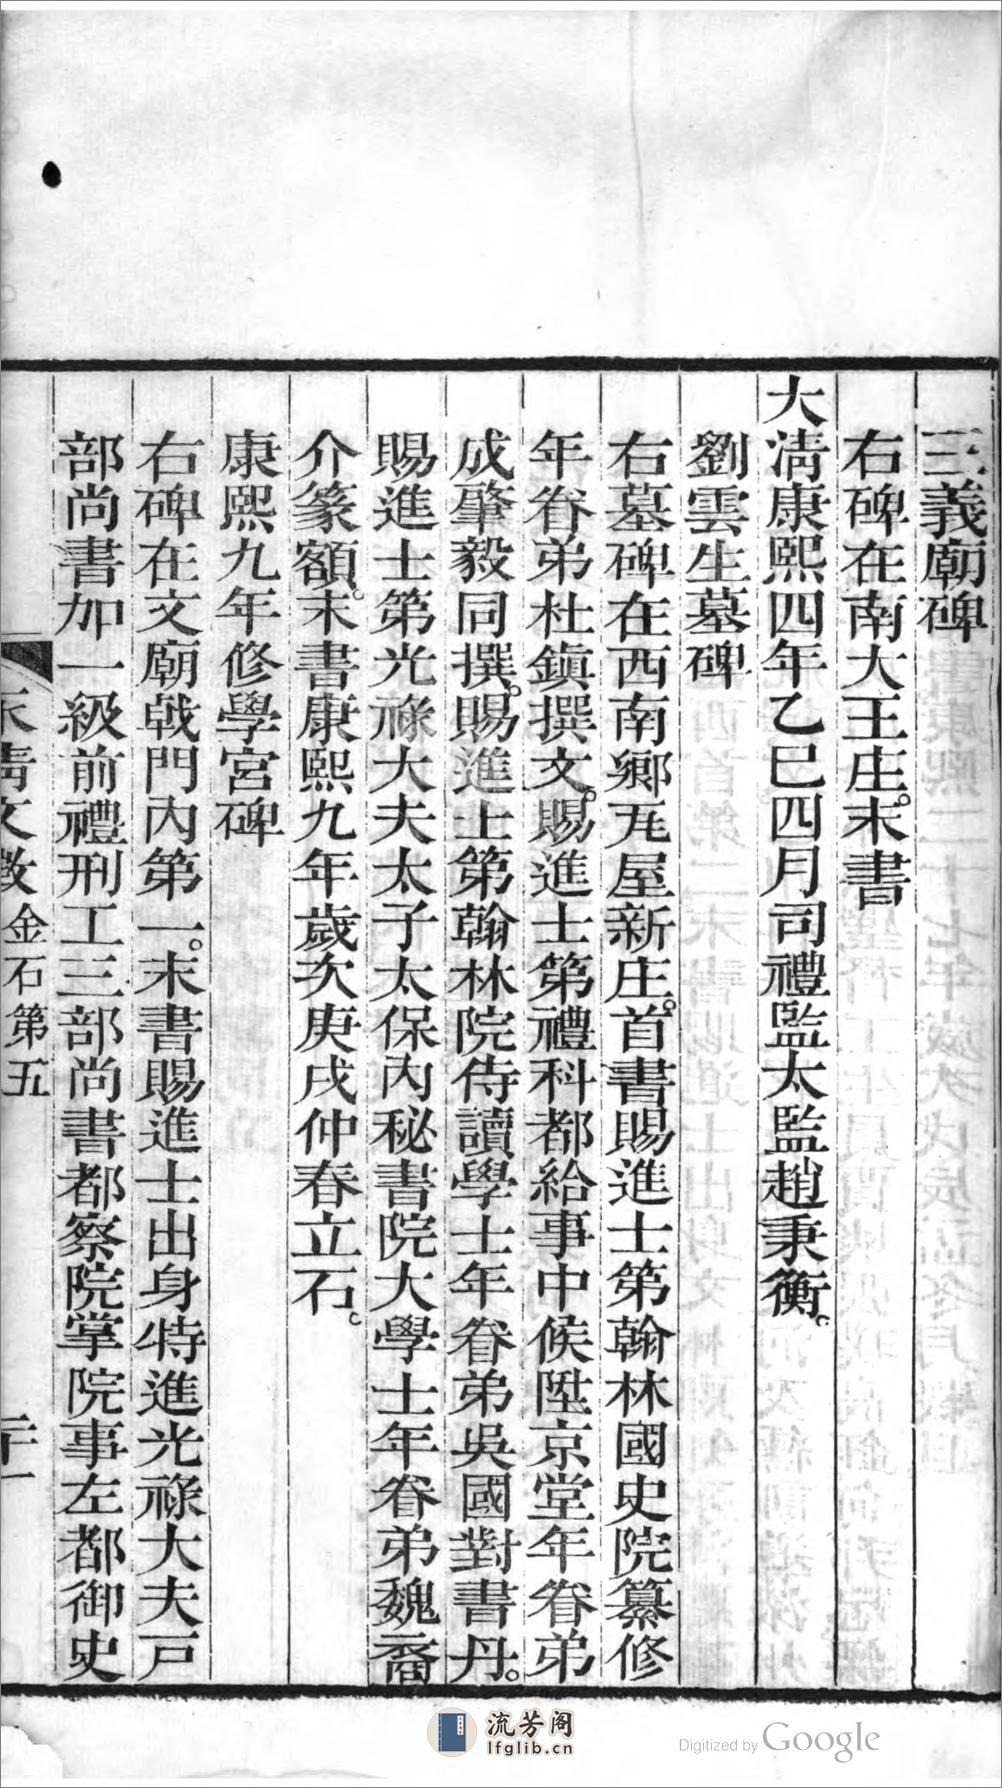 三義廟碑
右碑在南大王庄。末書
大淸康熙四年乙巳四月司禮監太監趙秉衡。
劉雲生墓碑
右墓碑在西南鄉瓦屋新庄。首書賜進士第翰林國史院纂修
年眷弟杜鎮撰文。賜進士第禮科都給事中候陞京堂年眷弟
成肇毅同撰。賜進士第翰林院侍讀學士年眷弟吳國對書丹。
賜進士第光祿大夫太子太保內秘書院大學士年眷弟魏裔
介篆額。末書康熙九年歲次庚戌仲春立石。
康熙九年修學宮碑
右碑在文廟戟門內第一。末書賜進士出身特進光祿大夫戸
部尚書加一級前禮刑工三部尚書都察院掌院事左都御史
文徵 金石第五
流芳阁
lfglib.cn
Digitized by Google